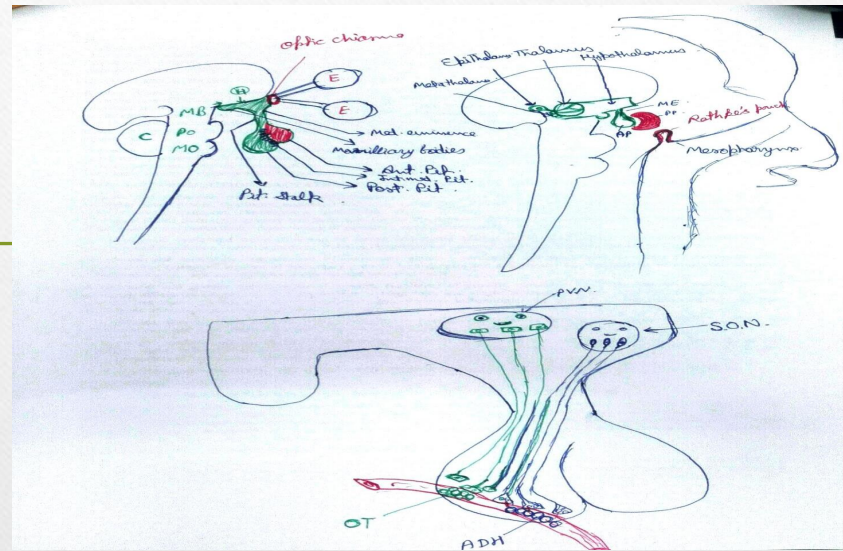 Optic chiasma
H
E
E
MB
C
Po
MO
Med. eminence
Mamilliary bodies
Ant. Pit.
Intmed. Pit.
Post. Pit.
Pit. Stalk
Epithalamo Thalamus Hypothalamus
Metathalamo
ME
PP
AP
Rathke's pouch
Mesopharynx
PVN.
S.O.N.
OT
ADH